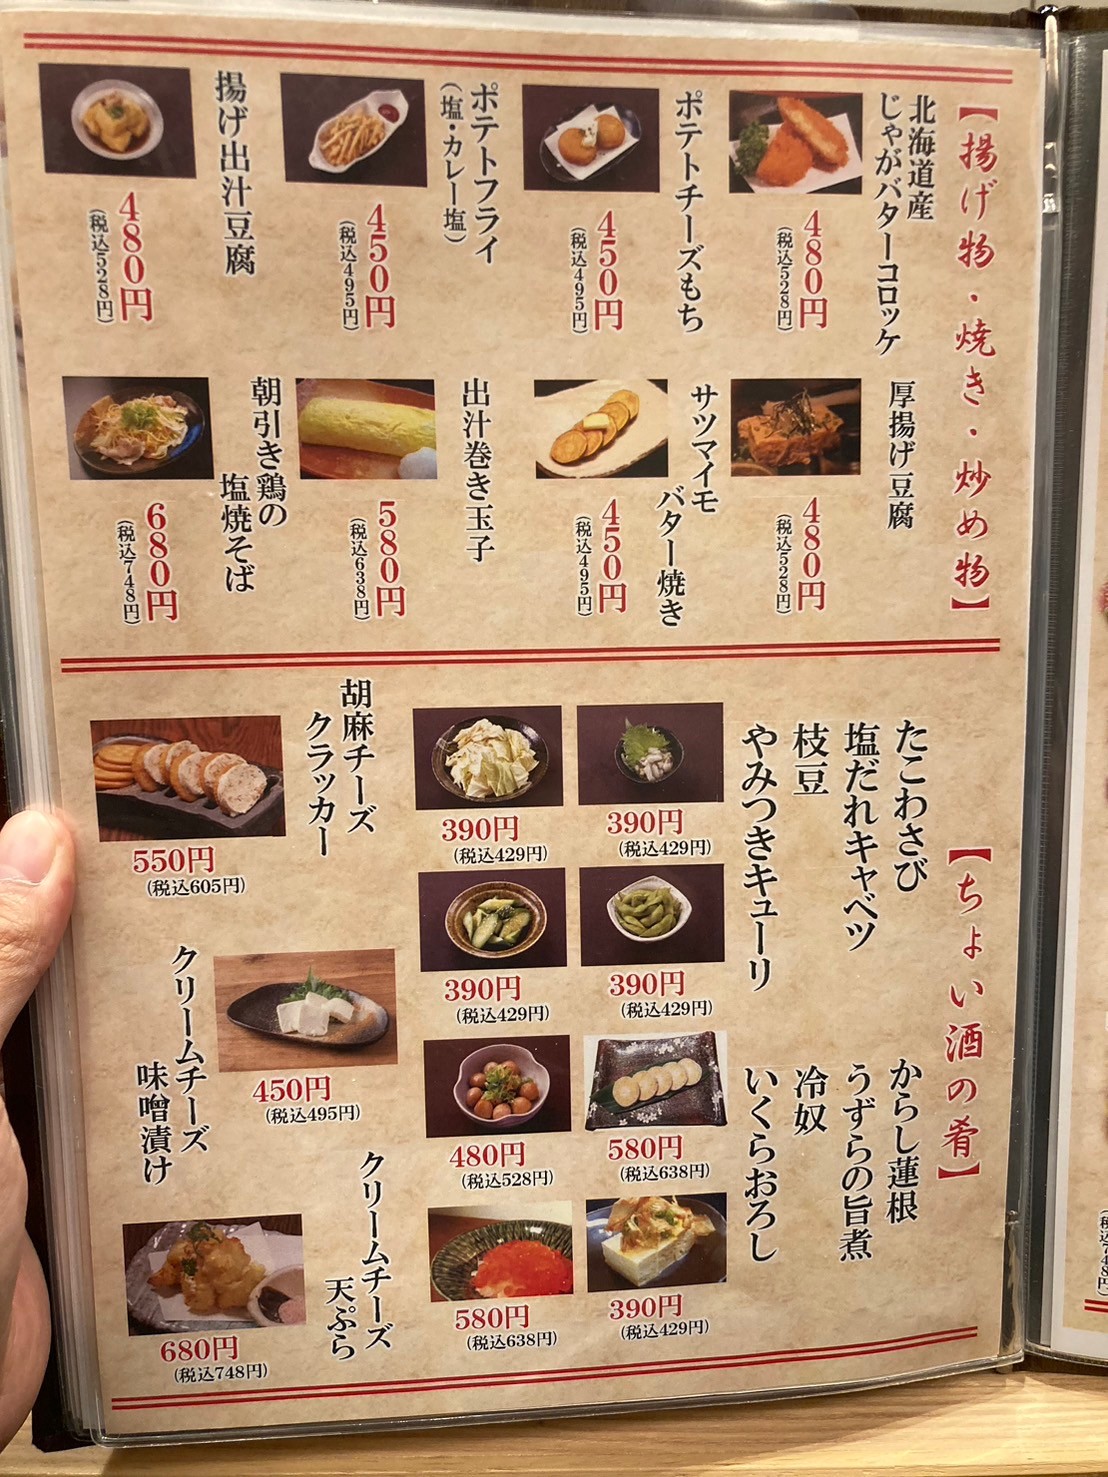 【揚げ物・焼き・炒め物】
北海道産
じゃがバターコロッケ
480円
(税込528円)
ポテトチーズもち
450円
(税込495円)
ポテトフライ
(塩・カレー塩)
450円
(税込495円)
揚げ出汁豆腐
480円
(税込528円)
厚揚げ豆腐
480円
(税込528円)
サツマイモ
バター焼き
450円
(税込495円)
出汁巻き玉子
580円
(税込638円)
朝引き鶏の
塩焼そば
680円
(税込748円)
【ちょい酒の肴】
たこわさび
塩だれキャベツ
枝豆
やみつきキューリ
390円
(税込429円)
390円
(税込429円)
390円
(税込429円)
390円
(税込429円)
からし蓮根
うずらの旨煮
冷奴
いくらおろし
580円
(税込638円)
480円
(税込528円)
390円
(税込429円)
580円
(税込638円)
胡麻チーズ
クラッカー
550円
(税込605円)
クリームチーズ
味噌漬け
450円
(税込495円)
クリームチーズ
天ぷら
680円
(税込748円)
(税込748円)